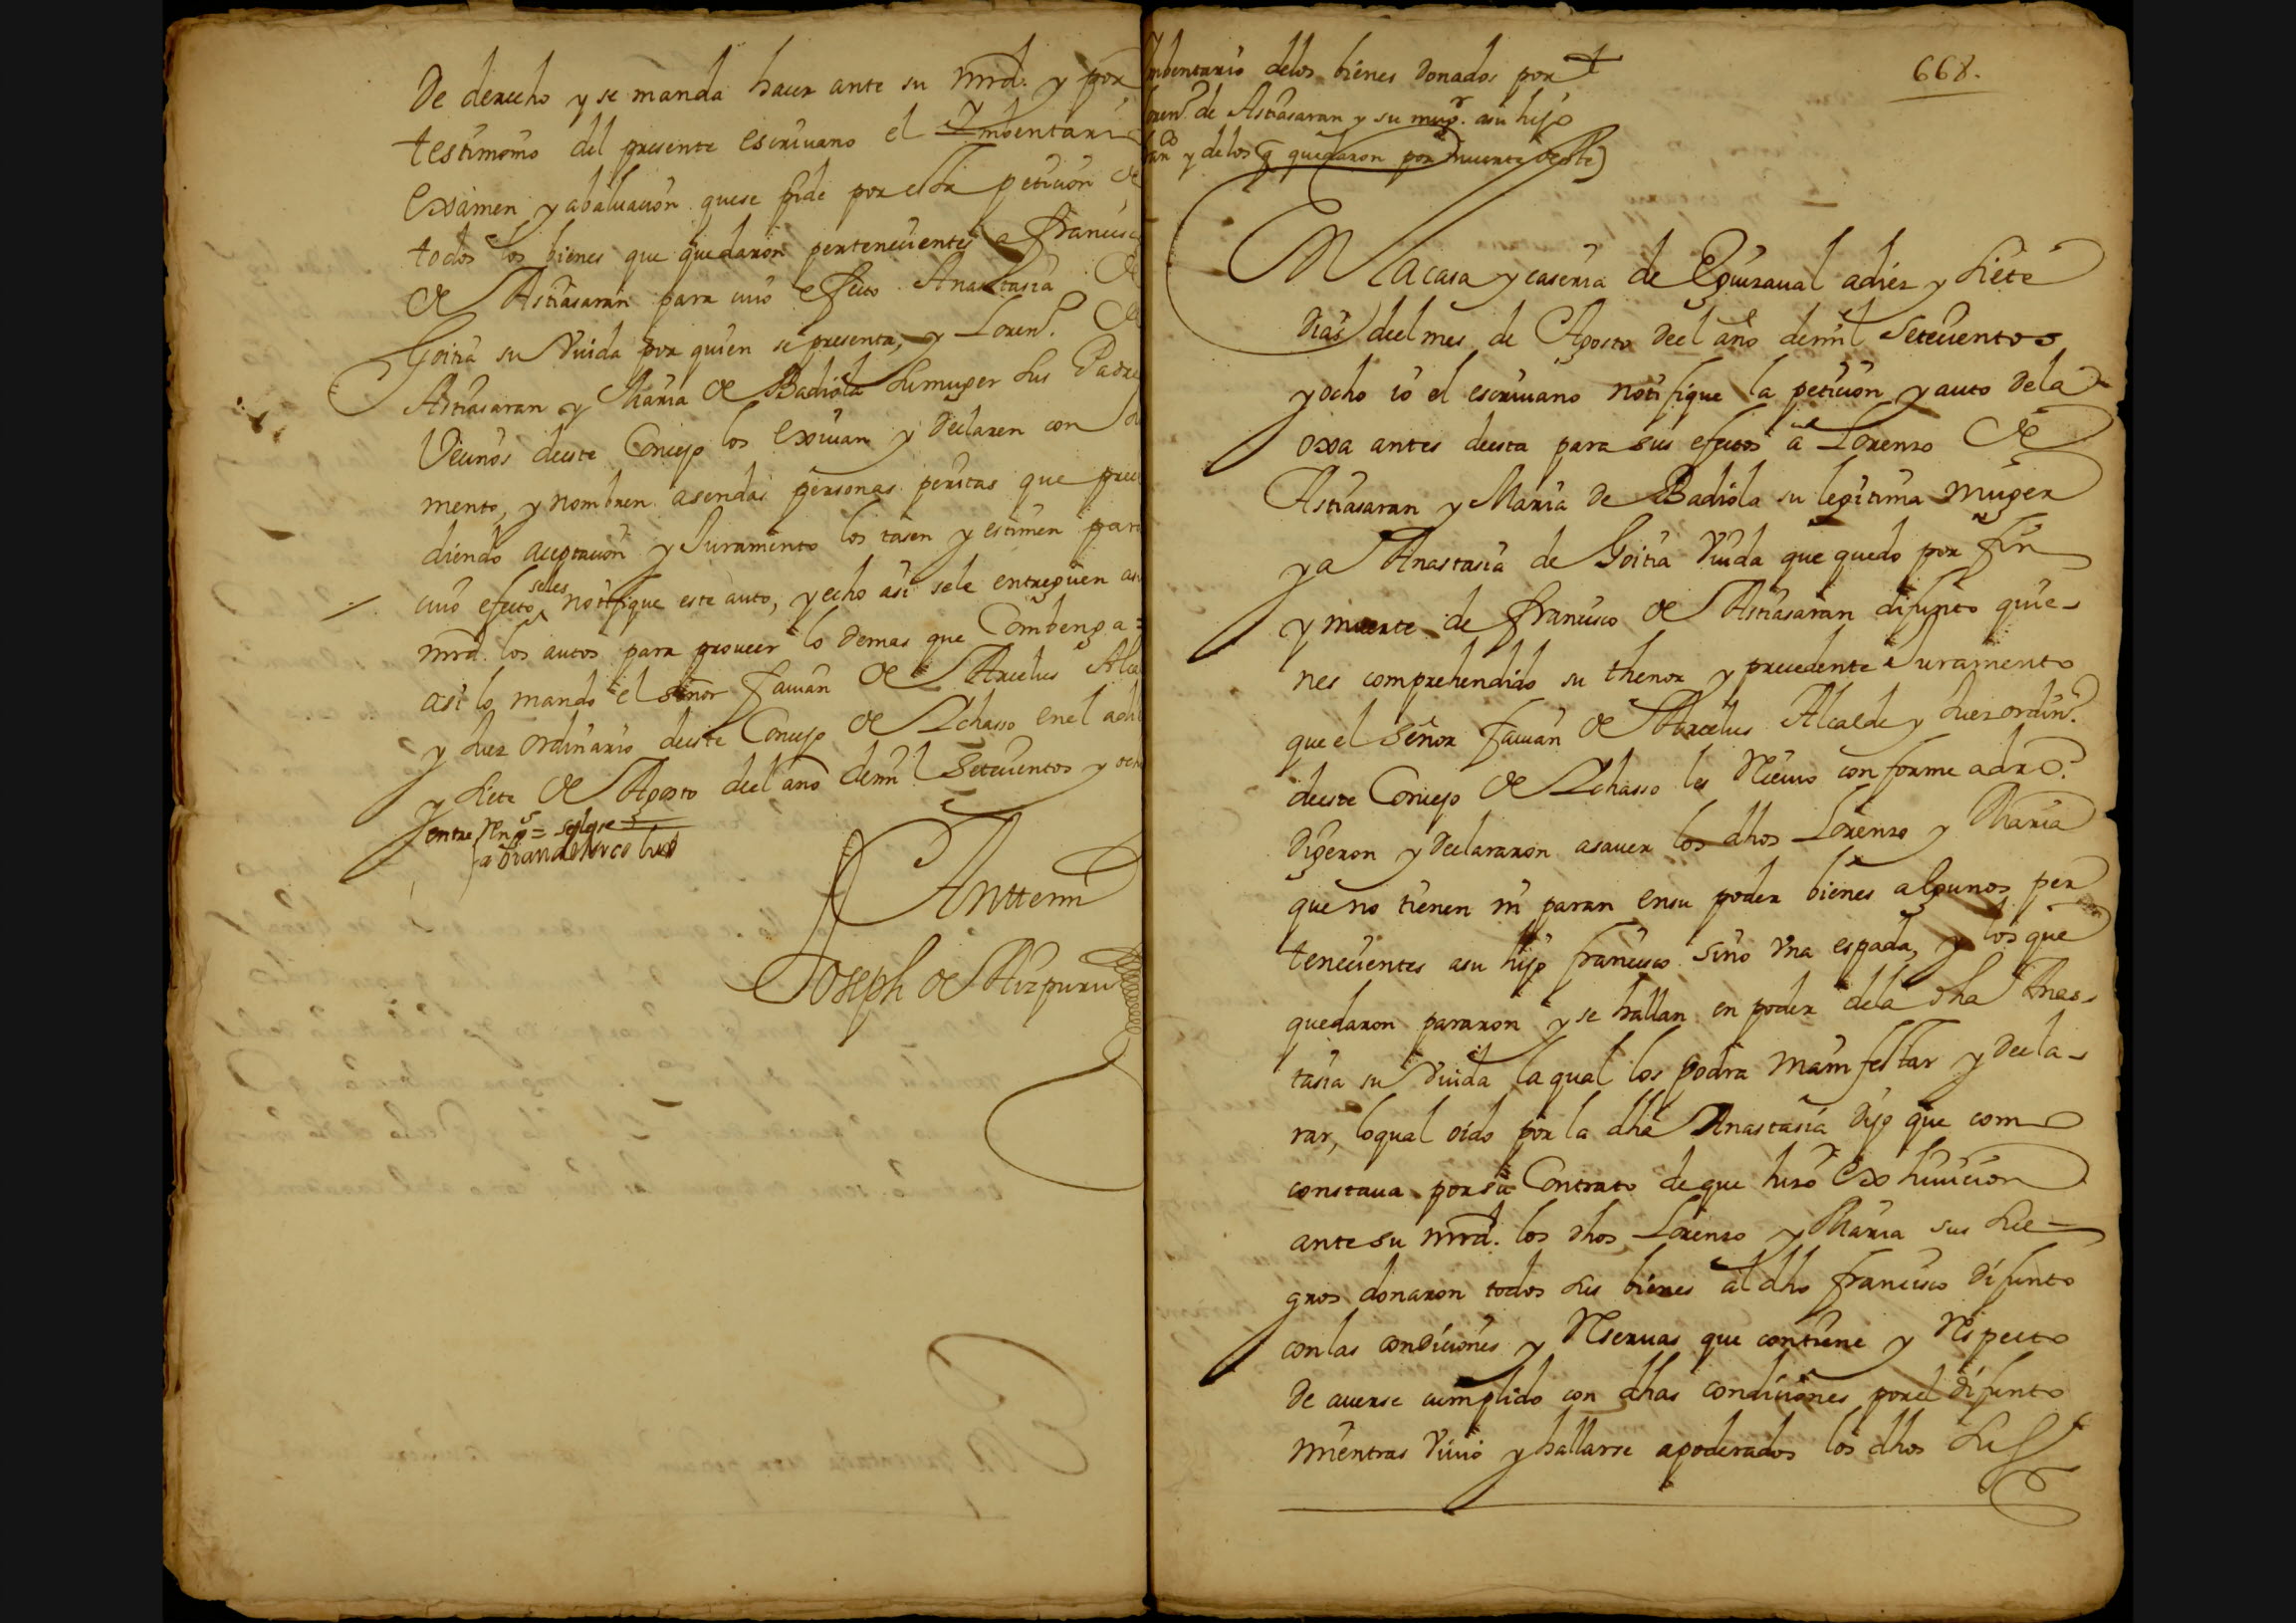 De derecho y se manda hacer ante su mrd. y por
testimonio del presente escriuano el Ymbentari
Examen y abaluacion que se pide por esta peticion de
todos los bienes que quedaron pertenecientes a francisc
de Astiasaran para cuio efecto Anastasia de
Goitia su Viuda por quien se presenta, y Loren.º de
Astiasaran y Maria de Badiola su muger sus Padre
Vecinos deeste Concejo los Exivan y Declaren con
mento, y nombren asendas personas peritas que prec
diendo aceptacion y Juramento los tasen y estimen par
cuio efecto seles notifique este auto, y echo asi sele entreguen a
mrd. los autos para proueer lo demas que Combenga =
asi lo mando el señor Jauian de Arcelus Alca
y Juez ordinario deeste Concejo de Ichasso en el a
y siete de Agosto deel año demil Setecientos y och
entre Rengs = seles =
a Bian de Arcelus
Anttemi
Joseph de Aizpuru
668.
Imbentario delos bienes Donados por
Loren.º de Astiasaran y su mugr. asu hijo
y delos q quedaron por muerte deste
EN la casa y caseria de Eguzaual adiez y siete
Dias deel mes de Agosto deel año demil setecientos
y ocho io el escriuano notifique la peticion y auto dela
oxa antes deesta para sus efectos a Lorenzo de
Astiasaran y Maria de Badiola su legitima muger
y a Anastasia de Goitia Viuda que quedo por fin
y muerte de francisco de Astiasaran difunto quie-
nes comprehendido su thenor y precedente Juramento
que el señor Jauian de Arcelus Alcalde y Juez ordin.º
deeste Concejo de Ichasso les Reciuio conforme a dro.
Digeron y Declararon asauer los dhos Lorenzo y Maria
que no tienen ni paran ensu poder bienes algunos per
tenecientes asu hijo francisco sino vna espada, y los que
quedaron pararon y se hallan en poder dela dha Anas-
tasia su Viuda la qual los podra manifestar y Decla-
rar, loqual oido por la dha Anastasia Dijo que como
constaua por su Contrato deque hizo Exhiuicion
ante su mrd. los dhos Lorenzo y Maria sus sue-
gros donaron todos sus bienes al dho francisco Difunto
conlas condiciones y Reseruas que contiene y Respecto
De auerse cumplido con dhas condiciones porel difunto
mientras Viuio y hallarse apoderados los dhos sus